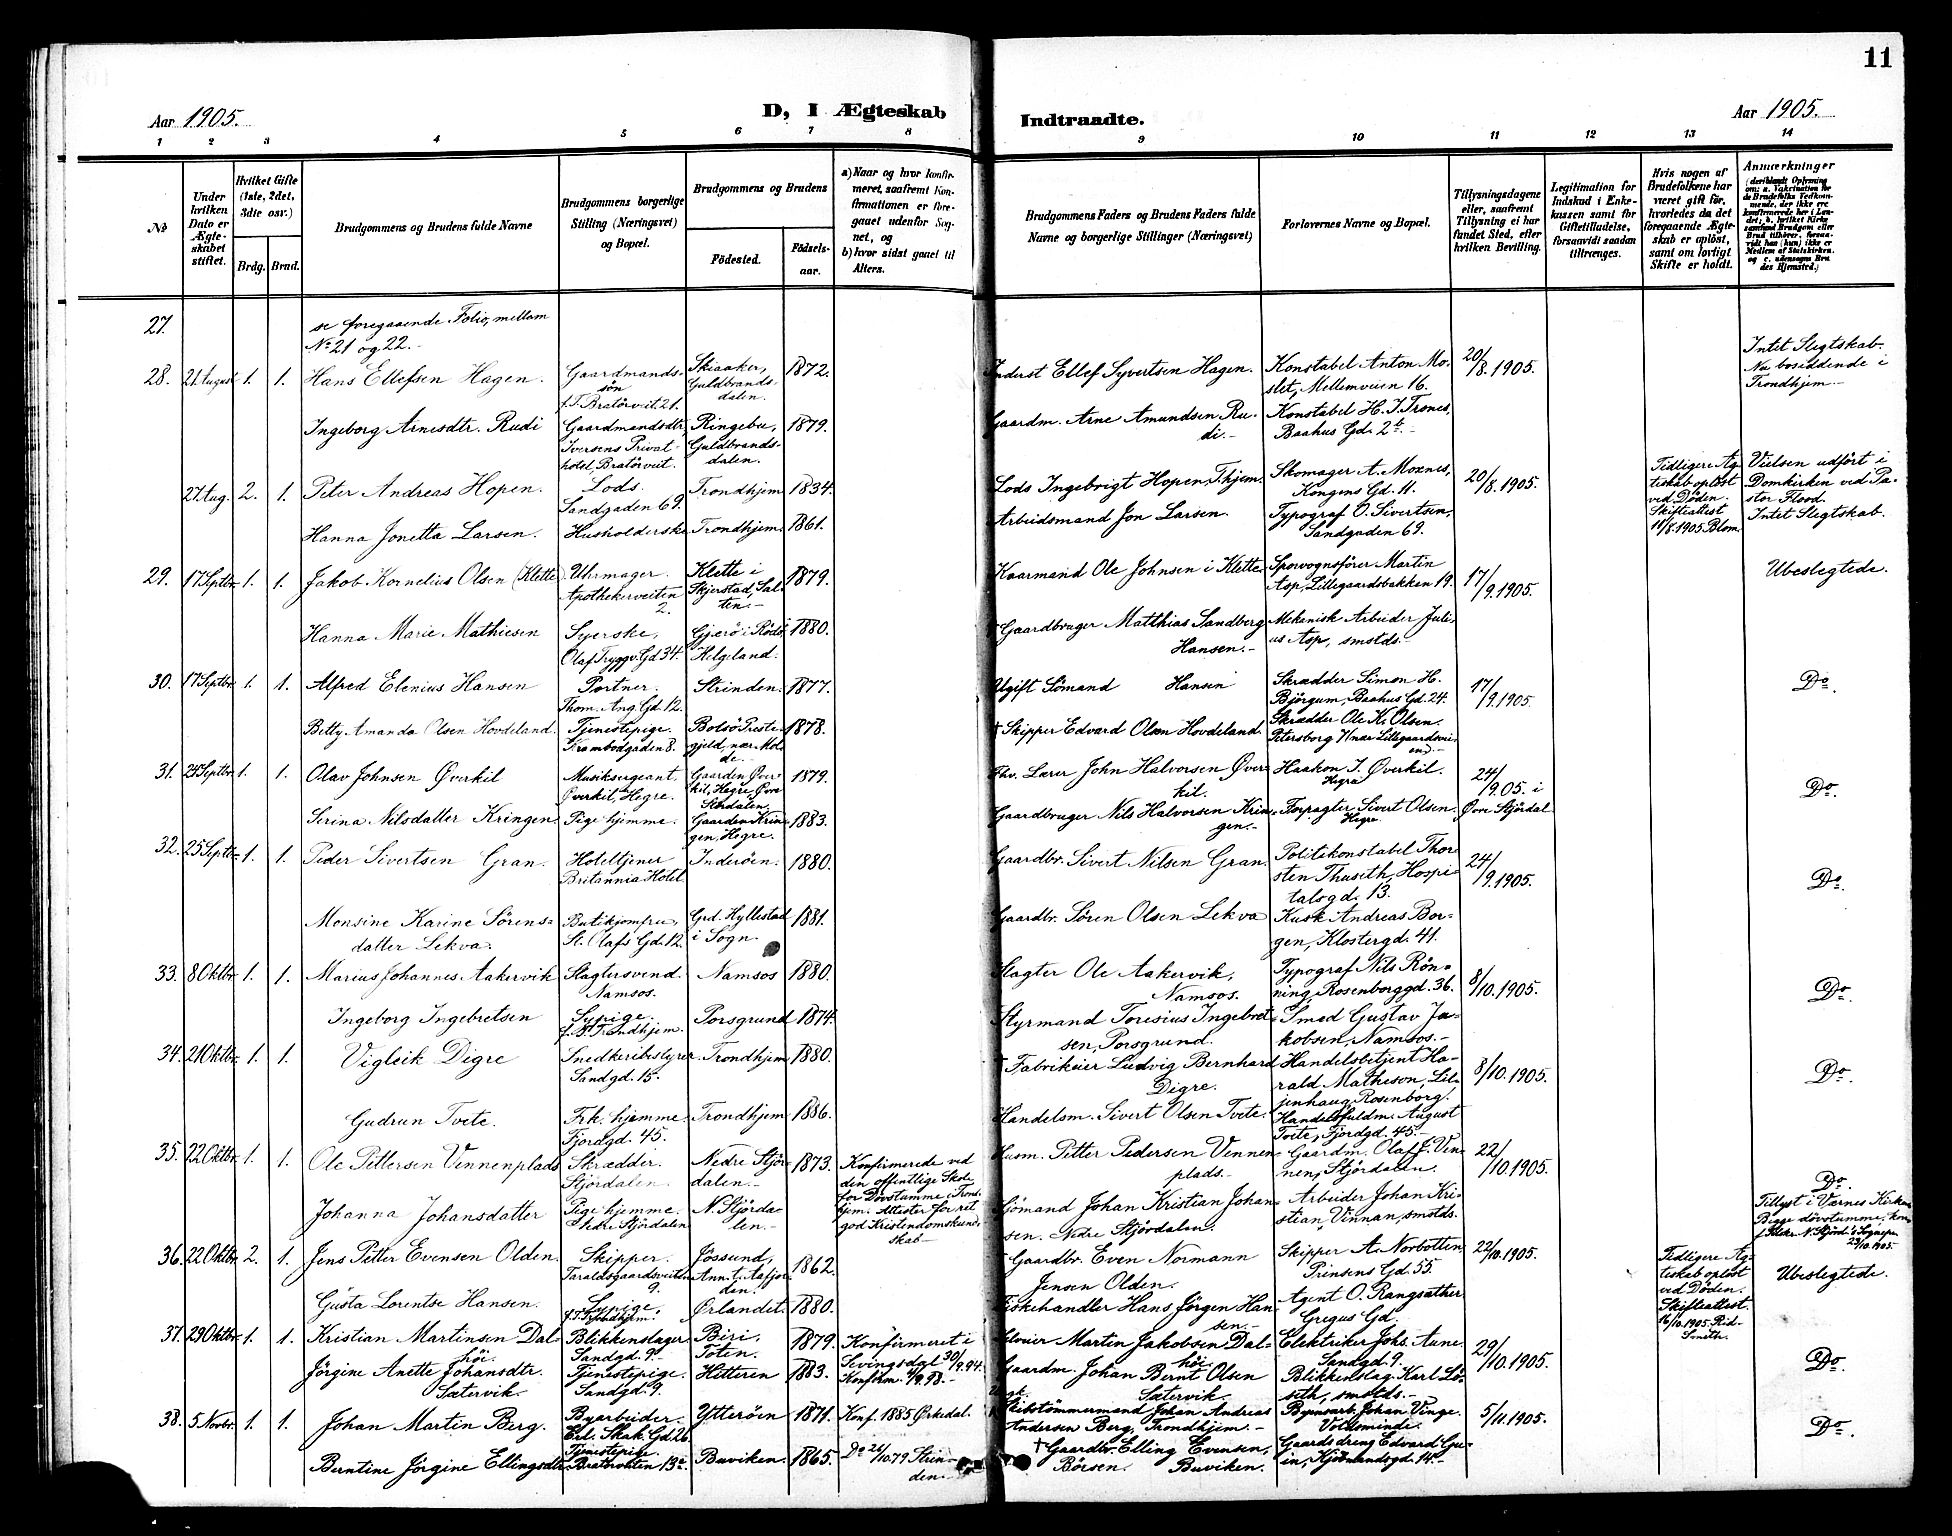 11
Aar 1905.
D, I Ægteskab
Indtraadte.
Aar 1905.
1 2 3 4 5 6 7 8 9 10 11 12 13 14
No
Under
hvilken
Dato er
Ægte-
skabet
stiftet.
Hvilket Gifte
(1ste, 2det,
3die osv.)
Brdg. Brud.
Brudgommens og Brudens fulde Navne
Brudgommens borgerlige
Stilling (Næringsvei)
og Bopæl.
Brudgommens og Brudens
Fødested.
Fødsels-
aar.
a) Naar og hvor konfir-
meret, saafremt Kon-
firmationen er fore-
gaaet udenfor Sog-
net, og
b) hvor sidst gaaet til
Alters.
Brudgommens Faders og Brudens Faders fulde
Navne og borgerlige Stillinger (Næringsvei)
Forlovernes Navne og Bopæl.
Tillysningsdagene
eller, saafremt
Tillysning ei har
fundet Sted, efter
hvilken Bevilling.
Legitimation for
Indskud i Enke-
kassen samt for
Giftetilladelse,
forsaavidt saadan
tiltrænges.
Hvis nogen af
Brudefolkene har
været gift før,
hvorledes da det
foregaaende Ægte-
skab er opløst,
samt om lovligt
Skifte er holdt.
Anmærkninger
(deriblandt Opførsel
om: a. Vaksination for
de Brudefolks Vedkom-
mende, der ikke ere
konfirmerede her i Lan-
det; b. hvilket Kirke-
samfund Brudgom eller
Brud tilhører, forsaa-
vidt han (hun) ikke er
Medlem af Statskirken,
og c. udensogns Bru-
des Hjemsted.)
27. se foregaaende Folio, mellem
No 21 og 22.-
28. 21 August 1. 1. Hans Ellefsen Hagen.
Gaardmands-
søn
f.T. Bratörveit. 21.
Skiaaker,
Guldbrands-
dalen.
1872.
Inderst Ellef Syvertsen Hagen.
Konstabel Anton Mo-
slet, Mellemveien 16.
20/8.1905.
Intet Slegtskab.
Nu bosiddende i
Trondhjem.
Ingeborg Arnesdtr. Rudi
Gaardmandsdtr,
Iversens Privat-
hotel, Bratörveit.
Ringebu,
Guldbrands-
dalen.
1879.
Gaardm. Arne Amundsen Ru-
di.-
Konstabel H. J. Trones,
Baahus Gd. 2b.-
27 Aug. 2. 1. Peter Andreas Hopen.
Lods.
Sandgaden 69.
Trondhjem 1834.
Lods Ingebrigt Hopen, Thjem.
Skomager A. Moxnes,
Kongens Gd. 11.
20/8.1905.
Tidligere Æg-
teskab opløst
ved Døden.
Skifteattest
11/8.1905. Blom.
Vielsen udført i
Domkirken ved Pa-
stor Flood.
Intet Slegtskab.
Hanna Jonetta Larsen.
Husholderske Trondhjem. 1861.
Arbeidsmand Jon Larsen.
Typograf O. Sivertsen,
Sandgaden 69.
29. 17 Septbr. 1. 1. Jakob Kornelius Olsen (Klette)
Uhrmager.
Apothekerveiten
2.
Klette i
Skjerstad, Sal-
ten.-
1879.
Kaarmand Ole Johnsen i Klette.
Sporvognsfører Martin
Asp, Lillegaardsbakken 19.
17/9.1905.
Ubeslegtede.
Hanna Marie Mathiesen
Syerske,
Olaf Tryggv. Gd 34.
Gjerö i Rödö
Helgeland.
1880.
Gaardbruger Matthias Sandberg
Hansen.-
Mekanisk Arbeider Juli-
us Asp, smstds.-
30. 17 Septbr. 1. 1. Alfred Elenius Hansen
Portner.
Thom. Ang. Gd. 12.
Strinden. 1877.
Ugift Sömand Hansen
Skrædder Simon H.
Björgum, Baahus Gd. 24.
17/9.1905.
Do.
Betty Amanda Olsen Hovdeland.
Tjenestepige.
Krambodgaden 8.
Bolsö Preste-
gjeld, nær Mol-
de.
1878.
† Skipper Edvard Olsen Hovdeland.
Skrædder Ole K. Olsen.
Petersborg nær Lillegaardsvei-
en.-
31. 24 Septbr. 1. 1. Olav Johnsen Øverkil
Musiksergeant.
Øverkil, Hegre.
Gaarden Øver-
kil, Hegre, Øvre
Stördalen.
1879.
Fhv. Lærer John Halvorsen Øver-
kil.
Haakon J. Øverkil.
Hegra
24/9.05. i
Øvre Stjördal
Do.
Serina Nilsdatter Kringen
Pige hjemme.
Gaarden Krin-
gen, Hegre.
1883.
Gaardbruger Nils Halvorsen Krin-
gen.-
Forpagter Sivert Olsen.
Hegre
32. 25 Septbr. 1. 1. Peder Sivertsen Gran.
Hoteltjener
Britannia Hotel
Inderöen. 1880.
Gaardbr. Sivert Nilsen Gran
Politikonstabel Thor-
sten Thuseth, Hospi-
talsgd. 13.
24/9.1905.
Do.
Monsine Karine Sörens-
datter Lekva.
Butikjomfru,
St. Olafs Gd. 12.
Grd. Hyllestad
i Sogn.
1881.
Gaardbr. Sören Olsen Lekva
Kusk Andreas Bor-
gen, Klostergd. 41.
33. 8 Oktbr. 1. 1. Marius Johannes Aakervik
Slagtersvend.
Namsos.
Namsos 1880.
Slagter Ole Aakervik,
Namsos.
Typograf Nils Rön-
ning, Rosenborggd. 36.
8/10.1905.
Do.
Ingeborg Ingebretsen
Sypige.
f. T. Trondhjem.
Porsgrund 1874.
Styrmand Toresius Ingebret-
sen, Porsgrund.
Smed Gustav Ja-
kobsen, Namsos.-
34. 21 Oktbr. 1. 1. Vigleik Digre
Snedkeribestyrer.
Sandgd. 15.
Trondhjem 1880.
† Fabrikeier Ludvig Bernhard
Digre.
Handelsbetjent Ha-
rald Matheson, Lil-
jenhaug, Rosenborg.
8/10.1905.
Do.
Gudrun Tvete.
Frk. hjemme.
Fjordgd. 45.
Trondhjem 1886.
Handelsm. Sivert Olsen Tvete.
Handelsfuldm. August
Tvete, Fjordgd. 45.-
35. 22 Oktbr. 1. 1. Ole Pettersen Vennenplads
Skrædder.
Stjördalen.
Nedre Stjör-
dalen.-
1873.
Konfirmerede ved
den offentlige Skole
for Døvstumme i Trond-
hjem. Attester for ret
god Kristendomskund-
skab-
Husm. Petter Pedersen Vennen-
plads.-
Gaardm. Olaf J. Ven-
nen, Stjördalen.
22/10.1905.
Do.
Tillyst i Værnes Kirke.
Begge døvstumme,
23/10.1905.
Johanna Johansdatter
Pige hjemme.
Nedre Stjördalen
N. Stjörda-
len.-
Sjömand Johan Kristian Johan-
sen. Nedre Stjördalen.
Arbeider Johan Kri-
stian, Vinnan, smstds.
36. 22 Oktbr. 2. 1. Jens Petter Evensen Olden.
Skipper.
Taraldsgaardsveiten
9.
Jössund,
Ann. t. Aafjor-
den.
1862.
Gaardbr. Even Normann
Jensen Olden.
Skipper A. Norbotten,
Prinsens Gd. 55.
22/10.1905.
Tidligere Æg-
teskab opløst
ved Døden.
Skifteattest.
16/10.1905. Rid-
Smith.
Ubeslegtede.
Gusta Lorentse Hansen.
Sypige,
f. T. Trondhjem.
Ørlandet. 1880.
Fiskehandler Hans Jörgen Han-
sen.-
Agent O. Rangsæther
Gregus Gd.
37. 29 Oktbr. 1. 1. Kristian Martinsen Dal-
höi.
Blikkenslager
Sandgd. 9.
Biri,
Toten.
1879.
Konfirmeret i
30/9.94.
Selveier Martin Jakobsen Dal-
höi.
Elektriker Johs. Aune.
Sandgd. 9.
29/10.1905.
Do.
Jörgine Anette Johansdtr.
Sætervik.
Tjenestepige.
Sandgd. 9.
Hitteren 1883.
Konfirm. 4/9.98.-
Gaardm. Johan Bernt Olsen
Sætervik.
Blikkenslag. Karl Lö-
seth, smstds.-
38. 5 Novbr. 1. 1. Johan Martin Berg.
Byarbeider.
Erl. Skak. Gd. 26.
Ytteröen 1871.
Konf. 1885 Ørkedal.
Skibstömmermand Johan Andreas
Andersen Berg, Trondhjem.-
Bryarb. Johan Vinge.
Voldsminde.
5/11.1905.
Do.
Berntine Jörgine Ellingsdtr.
Tjenestepige.
Bratveiten 13a.
Buviken. 1865.
Do 26/10.79 Strin-
den-
† Gaardbr. Elling Evensen,
Börsen. Buviken.
Gaardsdreng Edvard Gu-
in, Kjömandsgd. 14.